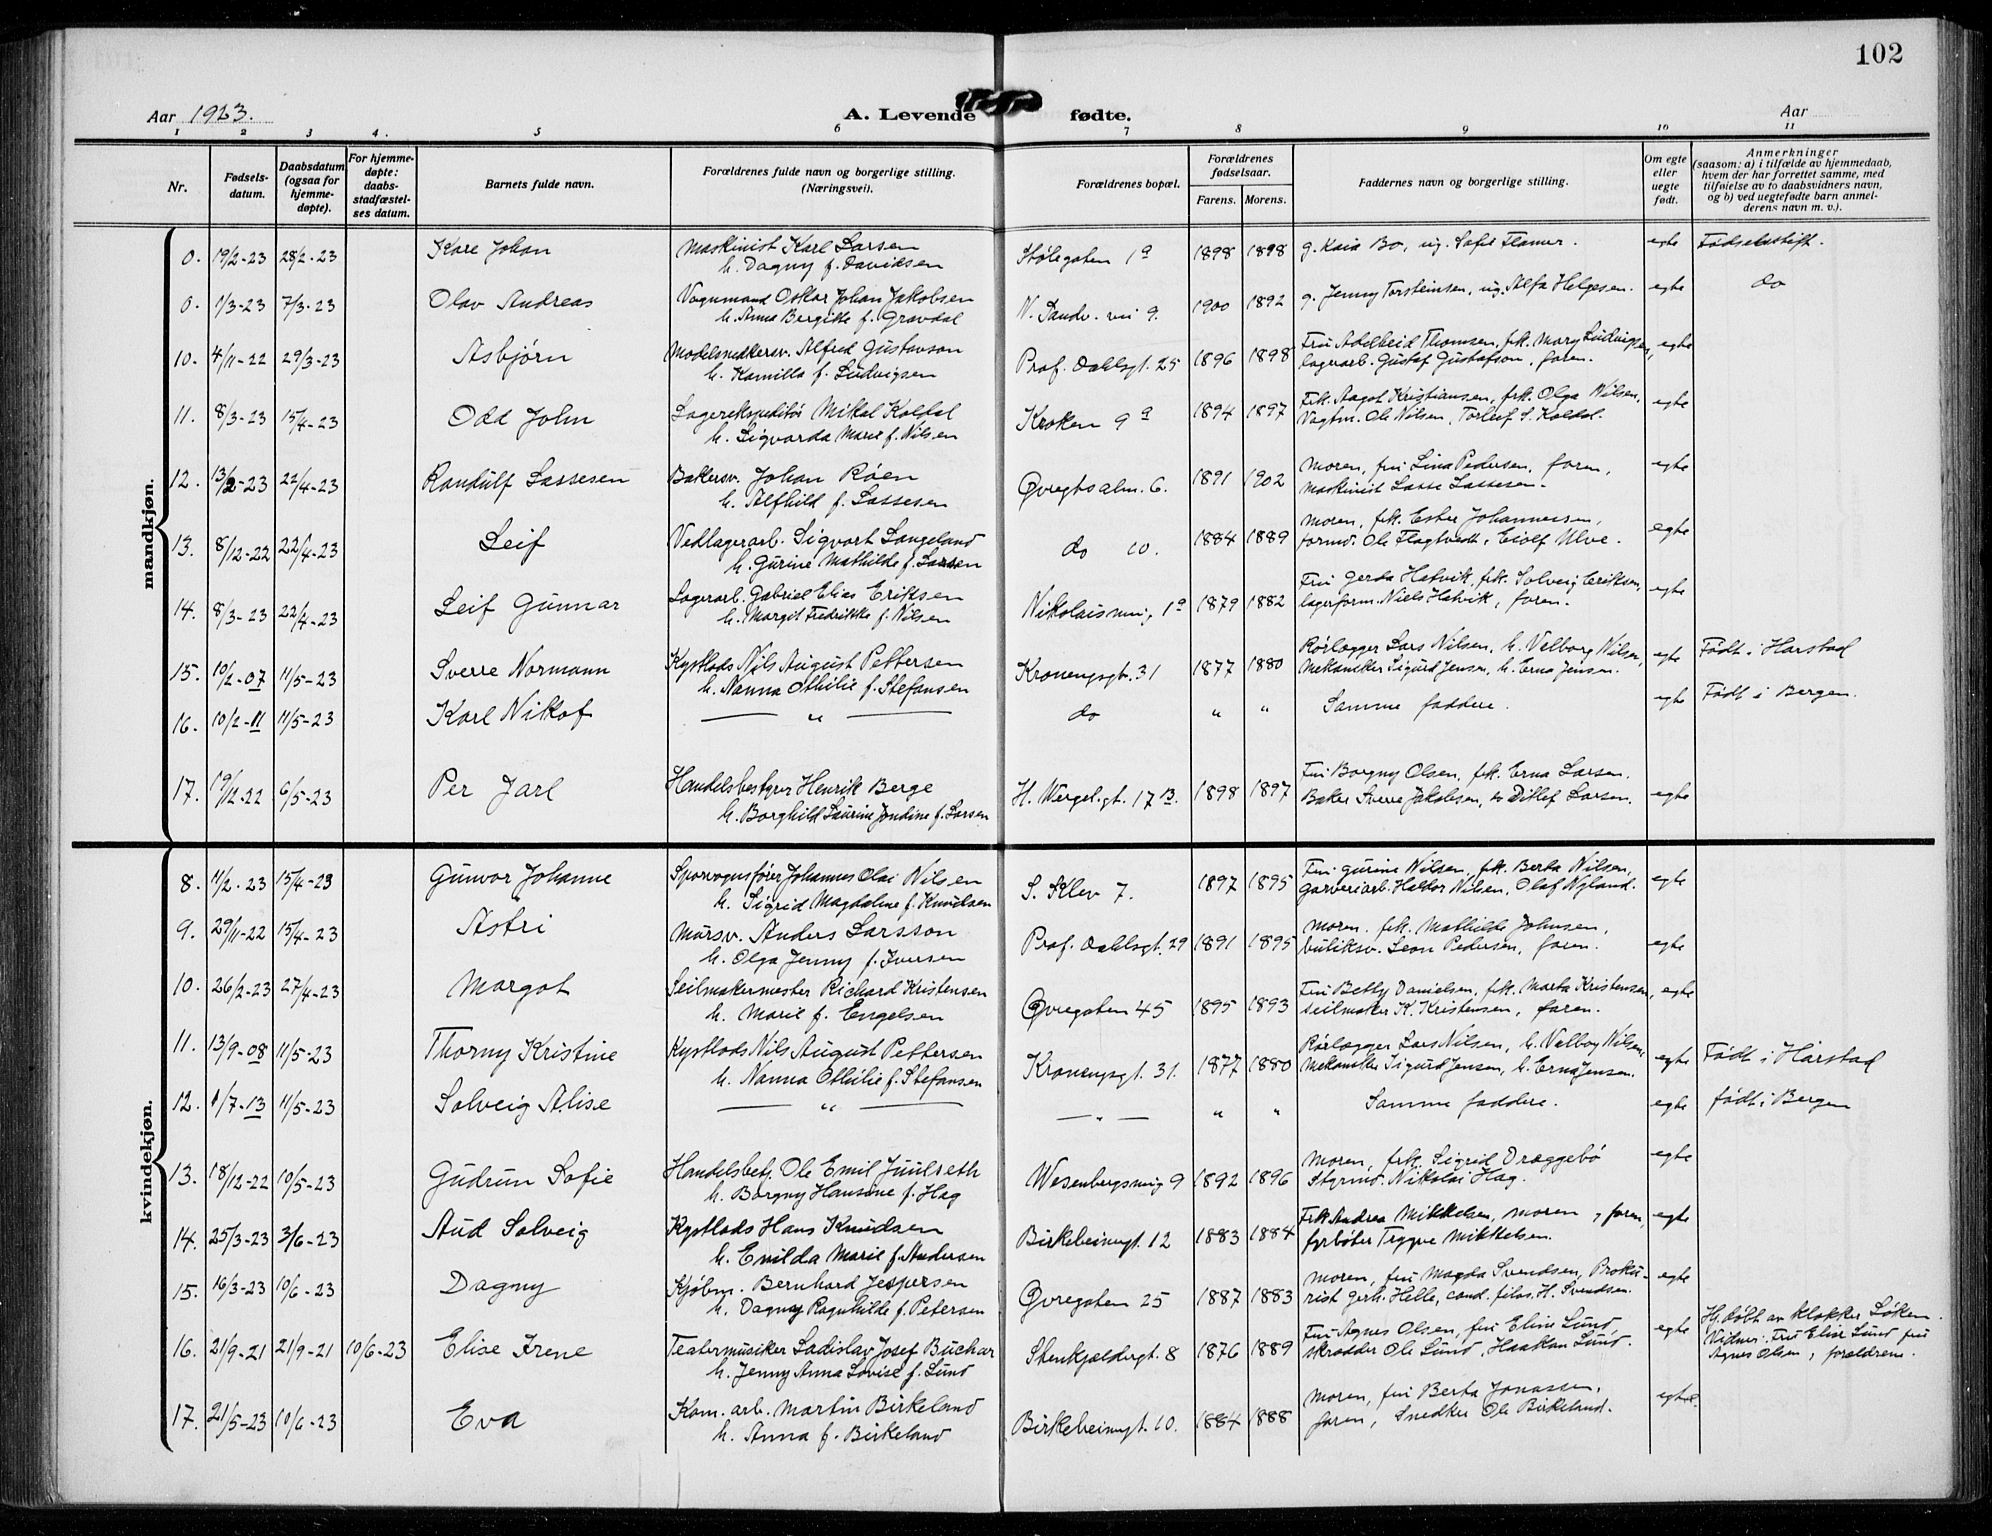 102
Aar 1923.
A. Levende fødte.
Aar
1 2 3 4. 5 6 7 8 9 10 11
Nr.
Fødsels-
datum.
Daabsdatum
(ogsaa for
hjemme-
døpte).
For hjemme-
døpte:
daabs-
stadfæstel-
ses datum.
Barnets fulde navn.
Forældrenes fulde navn og borgerlige stilling.
(Næringsvei).
Forældrenes bopæl.
Forældrenes
fødselsaar.
Farens. Morens.
Faddernes navn og borgerlige stilling.
Om egte
eller
uegte
født.
Anmerkninger
(saasom: a) i tilfælde av hjemmedaab,
hvem der har forrettet samme, med
tilføielse av to daabsvidners navn,
og b) ved uegtefødte barn anmel-
derens navn m. v.).
mandkjøn.
0. 19/2-23 28/2-23 Kare Johan Maskinist Karl Larsen
h. Dagny f. Davidsen Stølegaten 1a 1898 1898 g. Kaia Bo, ug. Sofie Flamer. egte Fødselsstift.
0. 1/3-23 7/3-23 Olav Andreas Vognmand Oskar Johan Jakobsen
h. Anna Bergitte f. Gravdal N. Sandv. vei 9. 1900 1892 g. Jenny Torsteinsen, ug. Alfa Helgesen. egte do
10. 4/11-22 29/3-23 Asbjørn Modelsnedkersv. Alfred Gustavson
h. Kamilla f. Ludvigsen Prof. Dahlsgt. 25 1896 1898 Fru Adelheid Thomsen, frk. Mary Ludvigsen,
lagerarb. Gustaf Gustafson, faren. egte
11. 8/3-23 15/4-23 Odd John Lagerekspeditør Mikal Koldal
h. Sigvarda Marie f. Nilsen Kroken 9a 1894 1897 Frk. Aagot Kristiansen, frk. Olga Nilsen,
Vagtm. Ole Nilsen, Torleif S. Koldal. egte
12. 13/2-23 22/4-23 Randulf Lassesen Bakersv. Johan Røen
h. Alfhild f. Lassesen Øvregtsalm. 6. 1891 1902 Moren, fru Lina Pedersen, faren,
Maskinist Lasse Lassesen. egte
13. 8/12-22 22/4-23 Leif Vedlagerarb. Sigvart Langeland
h. Gurine Mathilde f. Larsen do 10. 1884 1889 Moren, frk. Ester Johannessen,
formd. Ole Flagtvedt, Eiolf Ulve. egte
14. 8/3-23 22/4-23 Leif Gunnar Lagerarb. Gabriel Elias Eriksen
h. Margit Fredrikke f. Nilsen Nikolaismug 1a 1879 1882 Fru Gerda Hatvik, frk. Solveig Eriksen,
lagerform. Niels Hatvik, faren. egte
15. 10/2-07 11/5-23 Sverre Normann Kystlods Nils August Pettersen
h. Nanna Othilie f. Stefansen Kronengsgt. 31 1877 1880 Rørlægger Lars Nilsen, h. Velborg Nilsen,
Mekaniker Sigurd Jensen, h. Erna Jensen. egte Født i Harstad
16. 10/2-11 11/5-23 Karl Nikof — " — do " " Samme faddere. egte Født i Bergen.
17. 19/12-22 6/5-23 Per Jarl Handelsbestyrer Henrik Berge
h. Borghild Laurine Jondine f. Larsen H. Wergel.gt. 17 B. 1898 1897 Fru Borgny Olsen, frk. Erna Larsen.
Baker Sverre Jakobsen, Ditlef Larsen. egte
kvindekjøn.
8. 11/2-23 15/4-23 Gunvor Johanne Sporvognsfører Johannes Olai Nilsen
h. Sigrid Magdalene f. Knudsen S. Klev 7. 1897 1895 Fru Gurine Nilsen, frk. Berta Nilsen,
garveriarb. Heldor Nilsen, Olaf Nyland. egte
9. 29/11-22 15/4-23 Astri Mursv. Anders Larsson
h. Olga Jenny f. Iversen Prof. Dahlsgt. 29 1891 1895 Moren, frk. Mathilde Johnsen,
butiksv. Leon Pedersen, faren. egte
10. 26/2-23 27/4-23 Margot Seilmakermester Richard Kristensen
h. Marie f. Engelsen Øvregaten 45 1895 1893 Fru Betty Danielsen, frk. Marta Kristensen,
seilmaker K. Kristensen, faren. egte
11. 13/9-08 11/5-23 Thorny Kristine Kystlods Nils August Pettersen
h. Nanna Othilie f. Stefansen Kronengsgt. 31. 1877 1880 Rørlægger Lars Nilsen, h. Velborg Nilsen,
Mekaniker Sigurd Jensen, h. Erna Jensen. egte Født i Harstad
12. 1/7-13 11/5-23 Solveig Alise — " — — " — " " Samme faddere. egte født i Bergen
13. 18/12-22 10/5-23 Gudrun Sofie Handelsbetj. Ole Emil Juulseth
h. Borgny Hansine f. Hag Wesenbergsmug 9 1892 1896 Moren, frk. Sigrid Dræggebø
Styrmd. Nikolai Hag. egte
14. 25/3-23 3/6-23 Aud Solveig Kystlods Hans Knudsen
h. Emilda Marie f. Andersen Birkebeinergt. 12 1883 1884 Frk. Andrea Mikkelsen, moren, faren,
fyrbøter Trygve Mikkelsen. egte
15. 16/3-23 10/6-23 Dagny Kjøbm. Bernhard Jespersen
h. Dagny Ragnhilde f. Petersen Øvregaten 25 1887 1883 Moren, fru Magda Svendsen, Proku-
rist Gerh. Helle, cand. filos. H. Svendsen. egte
16. 21/9-21 21/9-21 10/6-23 Elise Irene Teatermusiker Ladislav Josef Buchar
h. Jenny Anna Lovise f. Lund Stenkjeldergt. 8 1876 1889 Fru Agnes Olsen, fru Elise Lund
skrædder Ole Lund, Haakon Lund. egte Hj. døbt av klokker Søken.
Vidner: Fru Elise Lund fru
Agnes Olsen, forældrene.
17. 21/5-23 10/6-23 Eva Kom. arb. Martin Birkeland
h. Anna f. Birkeland Birkebeinergt. 10. 1884 1888 Moren, fru Berta Jonassen,
faren, Snedker Ole Birkeland. egte